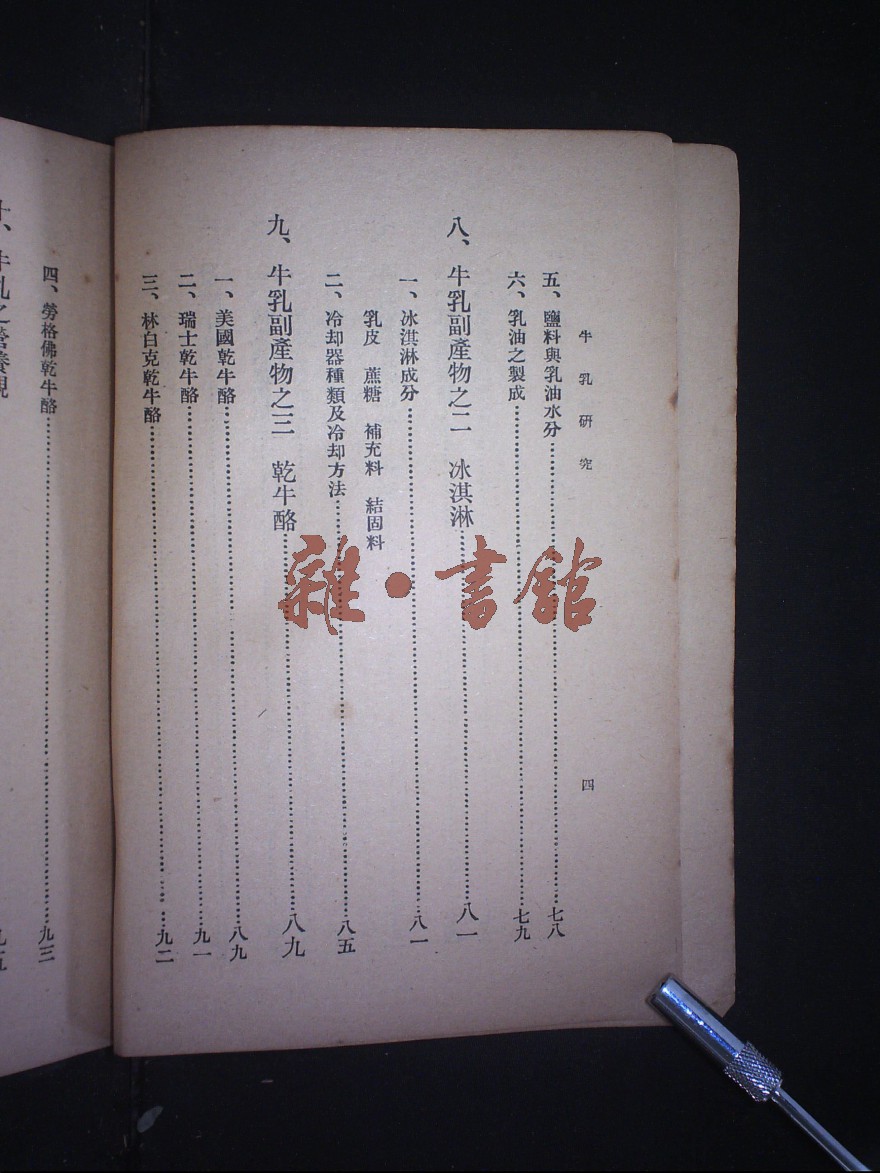 牛乳研究
四
五、鹽料與乳油水分……七八
六、乳油之製成……七九
八、牛乳副產物之二 冰淇淋……八一
一、冰淇淋成分……八一
乳皮 蔗糖 補充料 結固料
二、冷却器種類及冷却方法……八五
九、牛乳副產物之三 乾牛酪……八九
一、美國乾牛酪……八九
二、瑞士乾牛酪……九一
三、林白克乾牛酪……九二
四、勞格佛乾牛酪……九三
十、牛乳之營養觀……九五
雜·書館